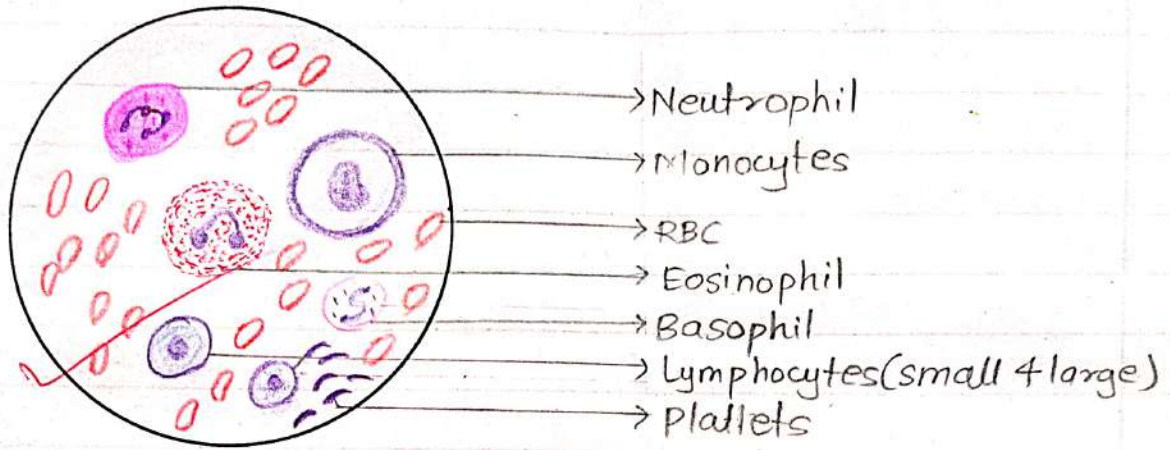 Neutrophil
Monocytes
RBC
Eosinophil
Basophil
Lymphocytes(small & large)
Platlets